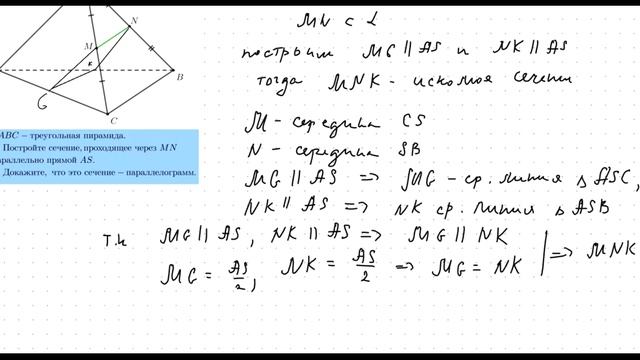 M
N
K
B
G
C
ABC – треугольная пирамида.
Постройте сечение, проходящее через MN
параллельно прямой AS.
Докажите, что это сечение – параллелограмм.
MN ⊂ α
построим MG ∥ AS и NK ∥ AS
тогда MNK – искомое сечени
M – середина CS
N – середина SB
MG ∥ AS => MG – ср. линия в ASC,
NK ∥ AS => NK ср. линия в ASB
т.к MG ∥ AS, NK ∥ AS => MG ∥ NK
MG = AS/2, NK = AS/2 => MG = NK | => MNK